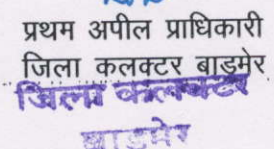 प्रथम अपील प्राधिकारी
जिला कलक्टर बाडमेर
जिला कलक्टर
बाडमेर